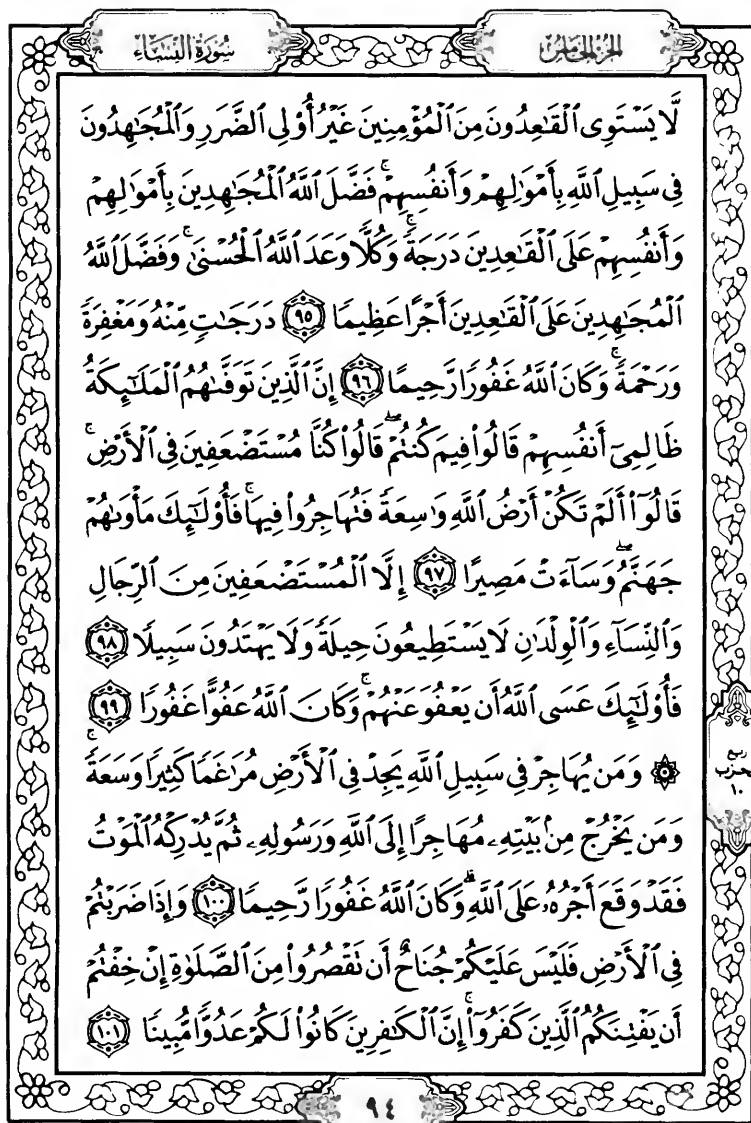 الجزء الخامس
سُورَةُ النِّسَاءِ
لَّا يَسْتَوِى ٱلْقَٰعِدُونَ مِنَ ٱلْمُؤْمِنِينَ غَيْرُ أُوْلِى ٱلضَّرَرِ وَٱلْمُجَٰهِدُونَ
فِى سَبِيلِ ٱللَّهِ بِأَمْوَٰلِهِمْ وَأَنفُسِهِمْ ۚ فَضَّلَ ٱللَّهُ ٱلْمُجَٰهِدِينَ بِأَمْوَٰلِهِمْ
وَأَنفُسِهِمْ عَلَى ٱلْقَٰعِدِينَ دَرَجَةً ۚ وَكُلًّا وَعَدَ ٱللَّهُ ٱلْحُسْنَىٰ ۚ وَفَضَّلَ ٱللَّهُ
ٱلْمُجَٰهِدِينَ عَلَى ٱلْقَٰعِدِينَ أَجْرًا عَظِيمًا ٩٥ دَرَجَٰتٍ مِّنْهُ وَمَغْفِرَةً
وَرَحْمَةً ۚ وَكَانَ ٱللَّهُ غَفُورًا رَّحِيمًا ٩٦ إِنَّ ٱلَّذِينَ تَوَفَّىٰهُمُ ٱلْمَلَٰٓئِكَةُ
ظَالِمِىٓ أَنفُسِهِمْ قَالُوا۟ فِيمَ كُنتُمْ ۖ قَالُوا۟ كُنَّا مُسْتَضْعَفِينَ فِى ٱلْأَرْضِ ۚ
قَالُوٓا۟ أَلَمْ تَكُنْ أَرْضُ ٱللَّهِ وَٰسِعَةً فَتُهَاجِرُوا۟ فِيهَا ۚ فَأُو۟لَٰٓئِكَ مَأْوَىٰهُمْ
جَهَنَّمُ ۖ وَسَآءَتْ مَصِيرًا ٩٧ إِلَّا ٱلْمُسْتَضْعَفِينَ مِنَ ٱلرِّجَالِ
وَٱلنِّسَآءِ وَٱلْوِلْدَٰنِ لَا يَسْتَطِيعُونَ حِيلَةً وَلَا يَهْتَدُونَ سَبِيلًا ٩٨
فَأُو۟لَٰٓئِكَ عَسَى ٱللَّهُ أَن يَعْفُوَ عَنْهُمْ ۚ وَكَانَ ٱللَّهُ عَفُوًّا غَفُورًا ٩٩
۞ وَمَن يُهَاجِرْ فِى سَبِيلِ ٱللَّهِ يَجِدْ فِى ٱلْأَرْضِ مُرَٰغَمًا كَثِيرًا وَسَعَةً ۚ
وَمَن يَخْرُجْ مِنۢ بَيْتِهِۦ مُهَاجِرًا إِلَى ٱللَّهِ وَرَسُولِهِۦ ثُمَّ يُدْرِكْهُ ٱلْمَوْتُ
فَقَدْ وَقَعَ أَجْرُهُۥ عَلَى ٱللَّهِ ۗ وَكَانَ ٱللَّهُ غَفُورًا رَّحِيمًا ١٠٠ وَإِذَا ضَرَبْتُمْ
فِى ٱلْأَرْضِ فَلَيْسَ عَلَيْكُمْ جُنَاحٌ أَن تَقْصُرُوا۟ مِنَ ٱلصَّلَوٰةِ إِنْ خِفْتُمْ
أَن يَفْتِنَكُمُ ٱلَّذِينَ كَفَرُوٓا۟ ۚ إِنَّ ٱلْكَٰفِرِينَ كَانُوا۟ لَكُمْ عَدُوًّا مُّبِينًا ١٠١
ربع
حزب
١٠
٩٤